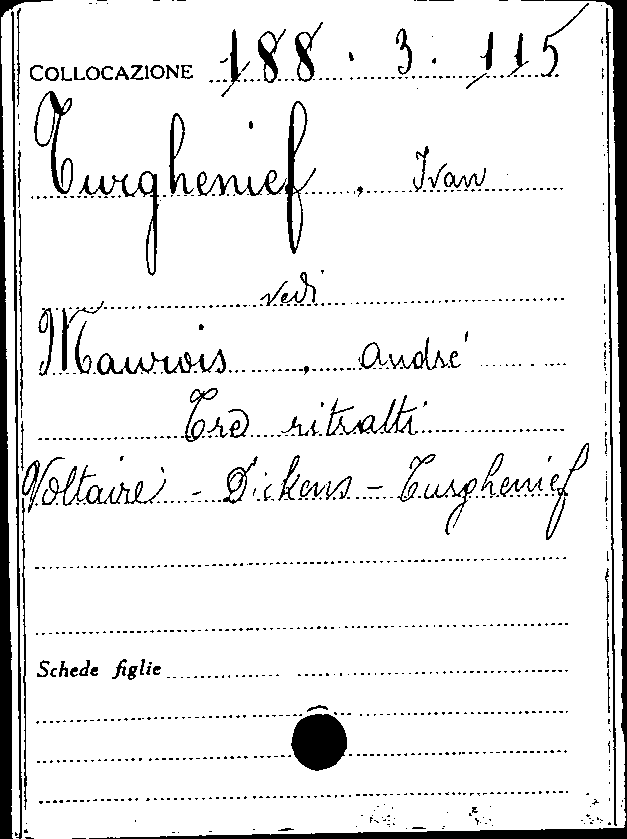 COLLOCAZIONE 188 . 3 . 115
Turghenief , Ivan
vedi
Maurois , André
Tre ritratti
Voltaire - Dickens - Turghenief
Schede figlie